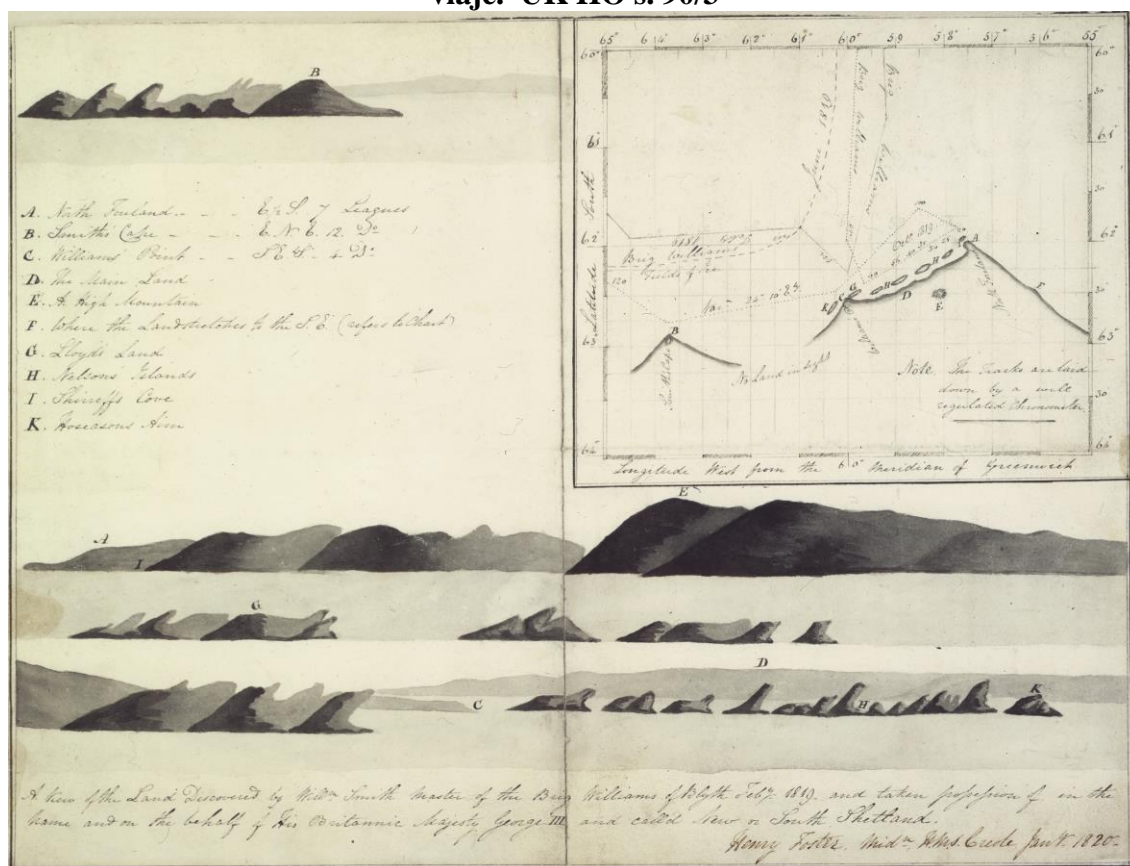 viaje. UK HO s. 90/3
B
A. North Foreland - - - E b S. 7 Leagues
B. Smiths Cape - - - E. N. E. 12. Do
C. Williams Point - - 4 Do
D. The Main Land
E. A High Mountain
F. Where the Land stretches to the S. E. (refers to Chart)
G. Lloyds Land
H. Nelsons Islands
I. Shirreffs Cove
K. Hoseasons
65° 64° 63° 62° 61° 60° 59 58° 57° 56° 55
60°
30
61°
30
62°
30
63°
30
64°
Latitude South
June 1819
Brig Williams
Brig Williams
Octr 1819
Brig Williams
Fields of ice
120
A
B
C
D
E
F
G
H
H
K
No Land in sight
Note. The Tracks are laid
down by a well
regulated Chronometer
Longitude West from the Meridian of Greenwich
A
I
E
G
C
D
H
K
A View of the Land Discovered by Willm Smith Master of the Brig Williams of Blyth Feby. 1819. and taken possession of in the
name and on the behalf of His Britannic Majesty George III and called New or South Shetland.
Henry Foster. Midn HMS. Creole Jany. 1820